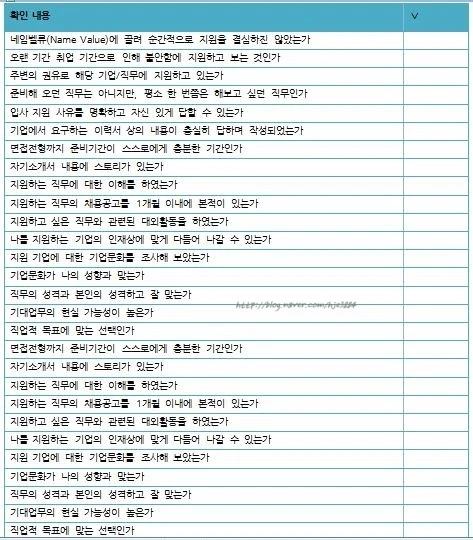 확인 내용 V
네임벨류(Name Value)에 끌려 순간적으로 지원을 결심하진 않았는가
오랜 기간 취업 기간으로 인해 불안함에 지원하고 보는 것인가
주변의 권유로 해당 기업/직무에 지원하고 있는가
준비해 오던 직무는 아니지만, 평소 한 번쯤은 해보고 싶던 직무인가
입사 지원 사유를 명확하고 자신 있게 답할 수 있는가
기업에서 요구하는 이력서 상의 내용이 충실히 답하며 작성되었는가
면접전형까지 준비기간이 스스로에게 충분한 기간인가
자기소개서 내용에 스토리가 있는가
지원하는 직무에 대한 이해를 하였는가
지원하는 직무의 채용공고를 1개월 이내에 본적이 있는가
지원하고 싶은 직무와 관련된 대외활동을 하였는가
나를 지원하는 기업의 인재상에 맞게 다듬어 나갈 수 있는가
지원 기업에 대한 기업문화를 조사해 보았는가
기업문화가 나의 성향과 맞는가
직무의 성격과 본인의 성격하고 잘 맞는가
http://blog.naver.com/hje3884
기대업무의 현실 가능성이 높은가
직업적 목표에 맞는 선택인가
면접전형까지 준비기간이 스스로에게 충분한 기간인가
자기소개서 내용에 스토리가 있는가
지원하는 직무에 대한 이해를 하였는가
지원하는 직무의 채용공고를 1개월 이내에 본적이 있는가
지원하고 싶은 직무와 관련된 대외활동을 하였는가
나를 지원하는 기업의 인재상에 맞게 다듬어 나갈 수 있는가
지원 기업에 대한 기업문화를 조사해 보았는가
기업문화가 나의 성향과 맞는가
직무의 성격과 본인의 성격하고 잘 맞는가
기대업무의 현실 가능성이 높은가
직업적 목표에 맞는 선택인가